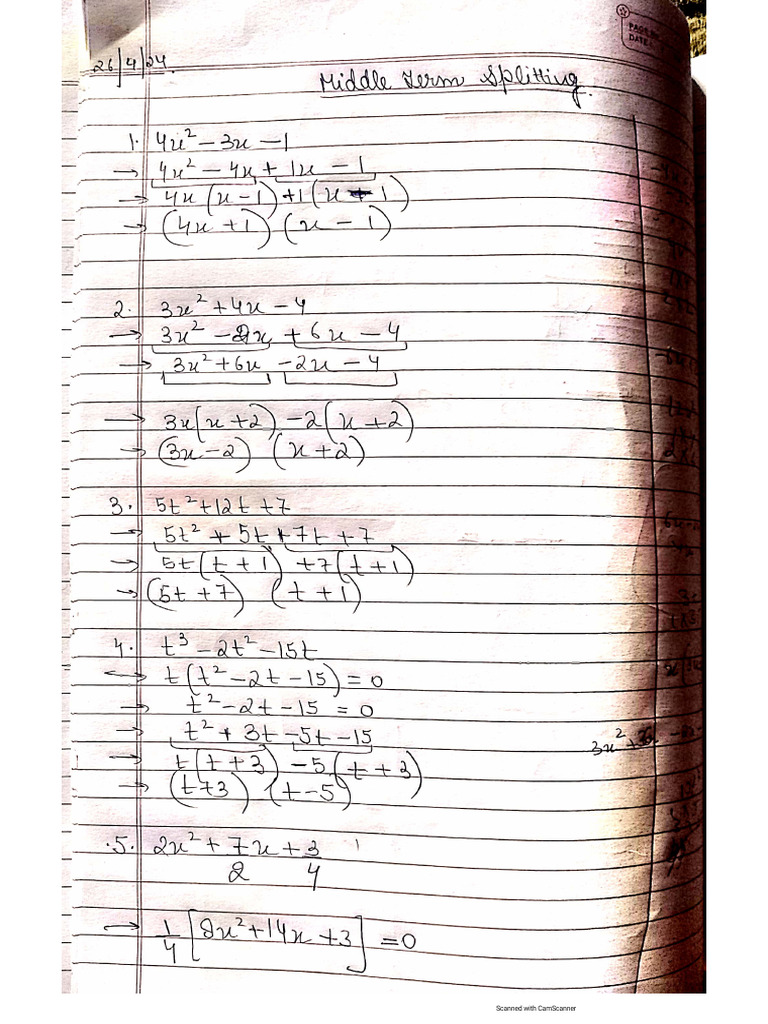 PAGE
DATE
26/4/24.
Middle Term Splitting.
1. 4x² - 3x - 1
→ 4x² - 4x + 1x - 1
→ 4x(x - 1) + 1(x - 1)
→ (4x + 1) (x - 1)
2. 3x² + 4x - 4
→ 3x² - 2x + 6x - 4
→ 3x² + 6x - 2x - 4
→ 3x(x + 2) - 2(x + 2)
→ (3x - 2) (x + 2)
3. 5t² + 12t + 7
→ 5t² + 5t + 7t + 7
→ 5t(t + 1) + 7(t + 1)
→ (5t + 7) (t + 1)
4. t³ - 2t² - 15t
→ t(t² - 2t - 15) = 0
→ t² - 2t - 15 = 0
→ t² + 3t - 5t - 15
→ t(t + 3) - 5(t + 3)
→ (t+3) (t - 5)
5. 2x² + 7x/2 + 3/4
→ 1/4 [8x² + 14x + 3] = 0
Scanned with CamScanner